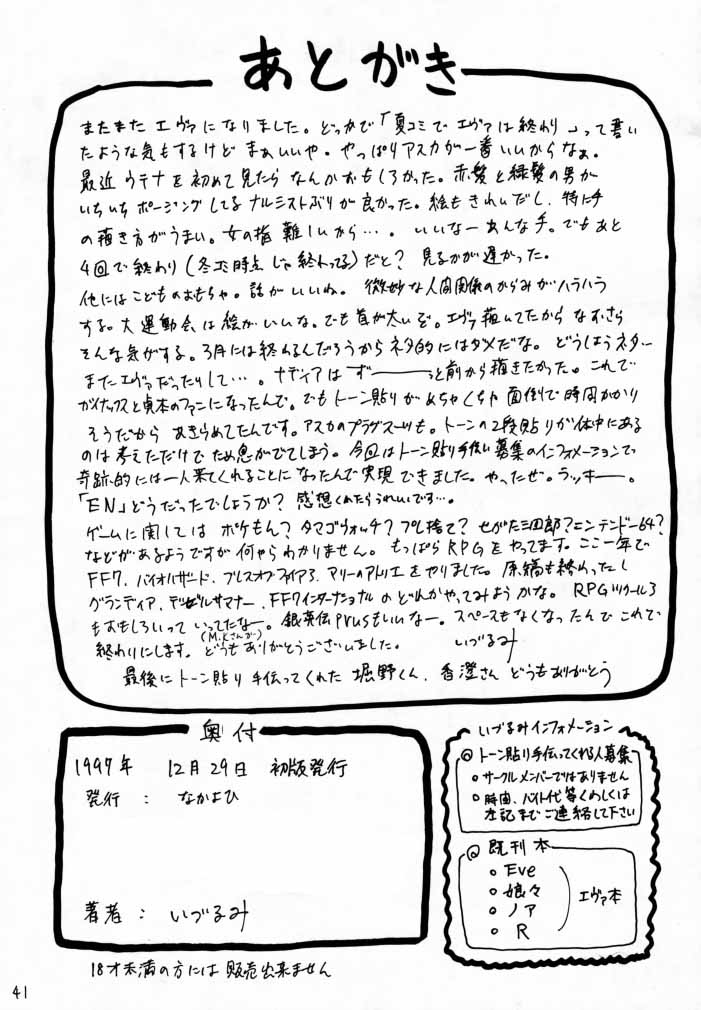 あとがき
またまたエヴァになりました。どっかで「夏コミでエヴァは終わり」って書い
たような気もするけどまぁいいや。やっぱりアスカが一番いいからなぁ。
最近ウテナを初めて見たらなんかおもしろかった。赤髪と緑髪の男が
いちいちポージングしてるナルシストぶりが良かった。絵もきれいだし、特に手
の描き方がうまい。女の指難しいから…。いいなーあんな手。でもあと
4回で終わり(冬コミ時点じゃ終わってる)だと?見るのが遅かった。
他にはこどものおもちゃ。話がいいね。微妙な人間関係のからみがハラハラ
する。大運動会は絵がいいな。でも首が太いぞ。エヴァ描いてたからなおさら
そんな気がする。3月には終わるんだろうからネタ的にはダメだな。どうしようネター
またエヴァだったりして…。ナディアはずーーーっと前から描きたかった。これで
ガイナックスと貞本のファンになったんで。でもトーン貼りがめちゃくちゃ面倒で時間かかり
そうだからあきらめてたんです。アスカのプラグスーツも。トーンの2段貼りが体中にある
のは考えただけでため息がでてしまう。今回はトーン貼り手伝い募集のインフォメーションで
奇跡的には一人来てくれることになったんで実現できました。やったぜ。ラッキー。
「EN」どうだったでしょうか?感想くれたらうれしいです…。
ゲームに関してはポケもん?タマゴウォッチ?プレ捨て?せがた三四郎?ニンテンドー64?
などがあるようですが何やらわかりません。もっぱらRPGをやってます。ここ一年で
FF7、バイオハザード、ブレスオブファイア3、マリーのアトリエをやりました。原稿も終わったし
グランディア、デビルサマナー、FF7インターナショナルのどれかやってみようかな。RPGツクール3
もおもしろいっていってたなー。銀英伝Prusもいいなー。スペースもなくなったんでこれで
(M.Kさんが)
終わりにします。どうもありがとうございました。 いづるみ
最後にトーン貼り手伝ってくれた堀野くん、香澄さんどうもありがとう
奥付
1997年 12月29日 初版発行
発行: なかよひ
著者: いづるみ
18才未満の方には販売出来ません
いづるみインフォメーション
◎トーン貼り手伝ってくれる人募集
○サークルメンバーではありません
○時間、バイト代等くわしくは
左記までご連絡して下さい
◎既刊本
○Eve
○娘々
○ノア
○R
エヴァ本
41